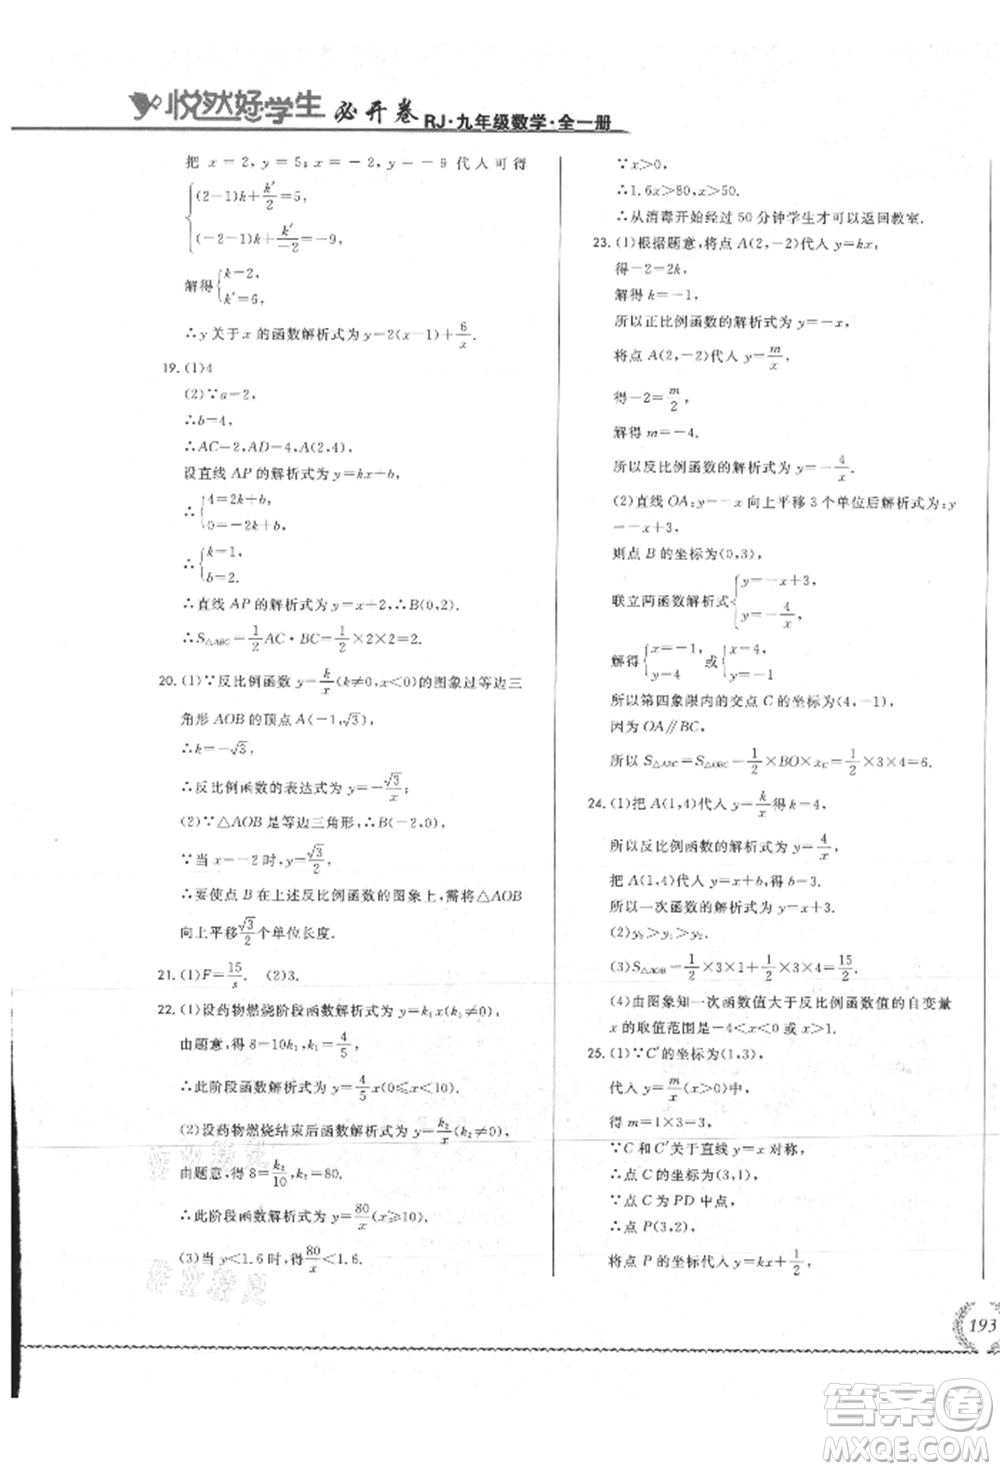 悦然好学生 必开卷 RJ·九年级数学·全一册
把 x=2, y=5; x=-2, y=-9 代人可得
{(2-1)k+k′/2=5,
(-2-1)k+k′/-2=-9,
解得{k=2,
k′=6,
∴y 关于 x 的函数解析式为 y=2(x-1)+6/x.
19. (1)4
(2)∵a=2,
∴b=4,
∴AC=2,AD=4,A(2,4).
设直线 AP 的解析式为 y=kx+b,
∴{4=2k+b,
0=-2k+b,
∴{k=1,
b=2.
∴直线 AP 的解析式为 y=x+2,∴B(0,2).
∴S△ABC=1/2AC·BC=1/2×2×2=2.
20. (1)∵反比例函数 y=k/x(k≠0,x<0)的图象过等边三
角形 AOB 的顶点 A(-1,√3),
∴k=-√3,
∴反比例函数的表达式为 y=-√3/x;
(2)∵△AOB 是等边三角形,∴B(-2,0),
∵当 x=-2 时,y=√3/2,
∴要使点 B 在上述反比例函数的图象上,需将△AOB
向上平移√3/2个单位长度.
21. (1)F=15/s. (2)3.
22. (1)设药物燃烧阶段函数解析式为 y=k₁x(k₁≠0),
由题意,得 8=10k₁,k₁=4/5,
∴此阶段函数解析式为 y=4/5x(0≤x<10).
(2)设药物燃烧结束后函数解析式为 y=k₂/x(k₂≠0),
由题意,得 8=k₂/10,k₂=80.
∴此阶段函数解析式为 y=80/x(x≥10).
(3)当 y<1.6 时,得80/x<1.6.
∵x>0,
∴1.6x>80,x>50.
∴从消毒开始经过 50 分钟学生才可以返回教室.
23. (1)根据题意,将点 A(2,-2)代人 y=kx,
得-2=2k,
解得 k=-1,
所以正比例函数的解析式为 y=-x,
将点 A(2,-2)代人 y=m/x,
得-2=m/2,
解得 m=-4.
所以反比例函数的解析式为 y=-4/x.
(2)直线 OA:y=-x 向上平移 3 个单位后解析式为:y
=-x+3,
则点 B 的坐标为(0,3),
联立两函数解析式{y=-x+3,
y=-4/x,
解得{x=-1,
y=4 或{x=4,
y=-1,
所以第四象限内的交点 C 的坐标为(4,-1),
因为 OA∥BC,
所以 S△ABC=S△OBC=1/2×BO×xC=1/2×3×4=6.
24. (1)把 A(1,4)代人 y=k/x得 k=4,
所以反比例函数的解析式为 y=4/x,
把 A(1,4)代人 y=x+b,得 b=3.
所以一次函数的解析式为 y=x+3.
(2)y₃>y₁>y₂.
(3)S△AOB=1/2×3×1+1/2×3×4=15/2.
(4)由图象知一次函数值大于反比例函数值的自变量
x 的取值范围是-4<x<0 或 x>1.
25. (1)∵C′的坐标为(1,3),
代人 y=m/x(x>0)中,
得 m=1×3=3.
∵C 和 C′关于直线 y=x 对称,
∴点 C 的坐标为(3,1),
∵点 C 为 PD 中点,
∴点 P(3,2),
将点 P 的坐标代人 y=kx+1/2,
193
作业精灵
作业精灵
答案卷
MXQE.COM